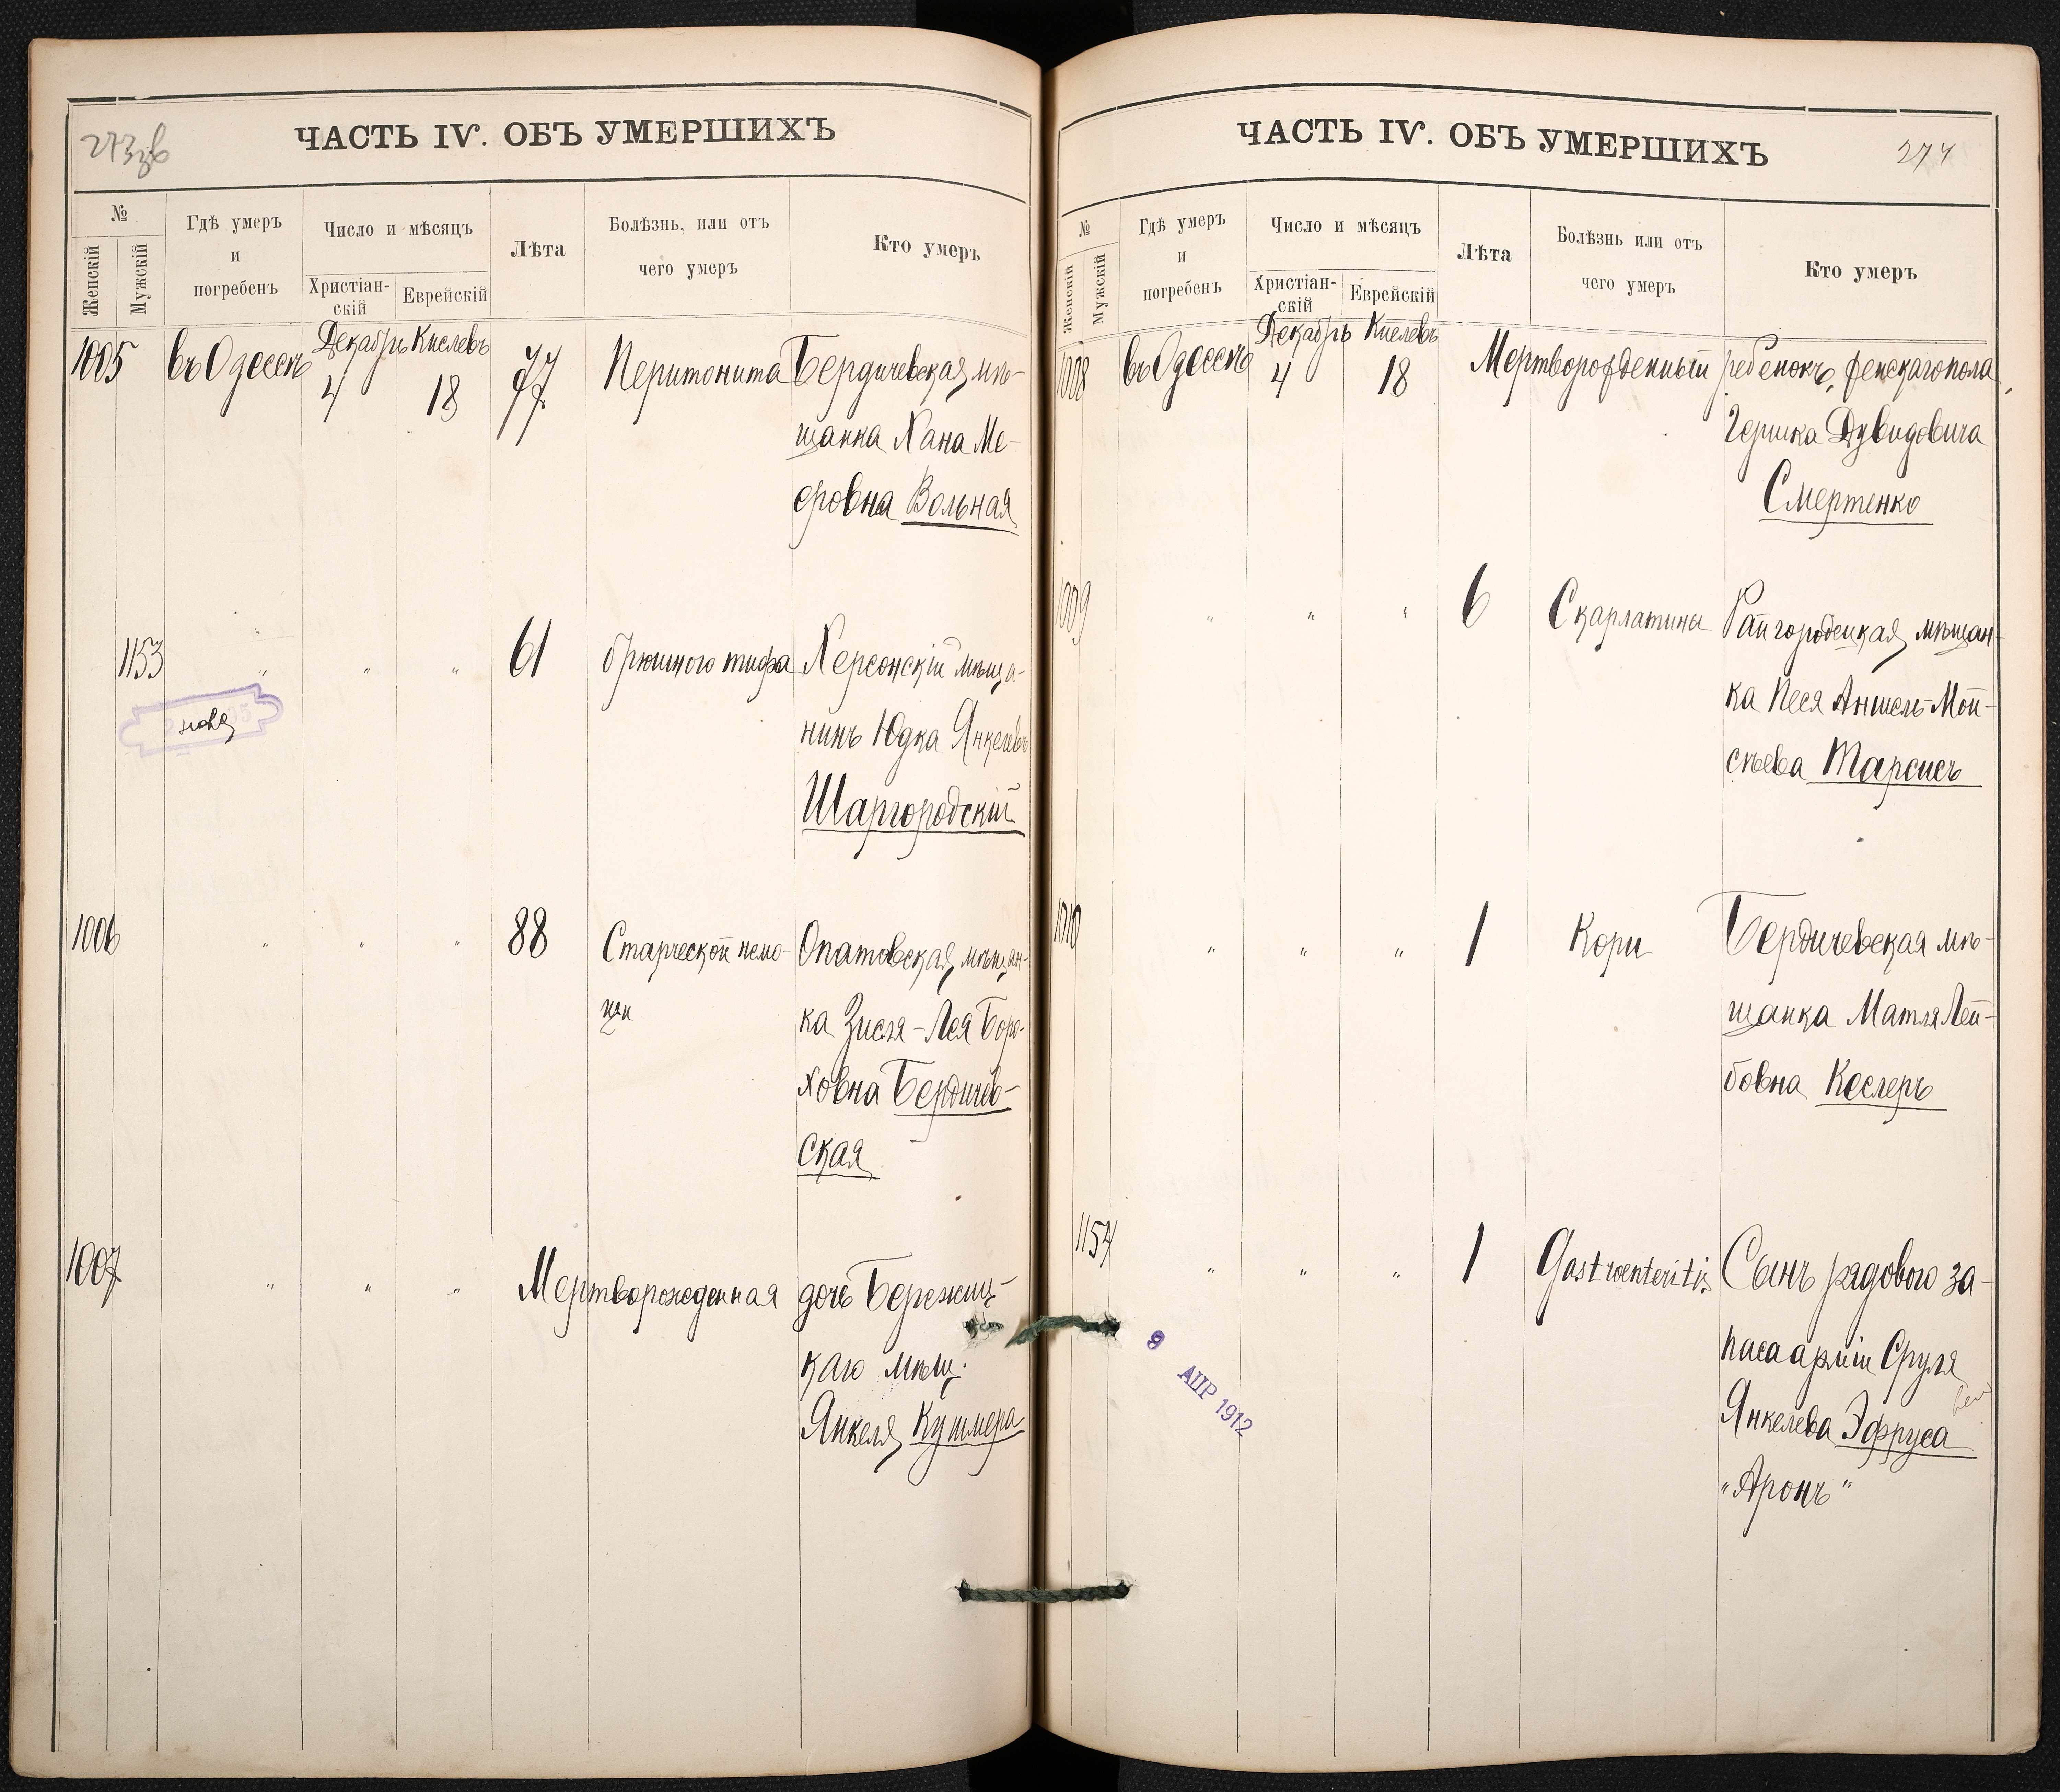 273 зв
ЧАСТЬ IV. ОБЪ УМЕРШИХЪ
№
Женскій
Мужскій
Гдѣ умеръ
и
погребенъ
Число и мѣсяцъ
Христіан-
скій
Еврейскій
Лѣта
Болѣзнь, или отъ
чего умеръ
Кто умеръ
1005 въ Одессѣ Декабрь 4 Кислевъ 18 77 77 Перитонита Бердичевская мѣ-
щанка Хана Ме-
еровна Вольная
1153 " " " 61 брюшного тифа Херсонскій мѣща-
нинъ Юдка Янкелевъ
Шаргородскій
1006 " " " 88 Старческой немо- Опатовская мѣщан-
щи ка Зисля-Лея Боро-
ховна Бердичев-
ская
1007 " " " Мертворожденная дочь Бережиц-
каго мѣщ.
Янкеля Кушмера
ЧАСТЬ IV. ОБЪ УМЕРШИХЪ
274
№
Женскій
Мужскій
Гдѣ умеръ
и
погребенъ
Число и мѣсяцъ
Христіан-
скій
Еврейскій
Лѣта
Болѣзнь или отъ
чего умеръ
Кто умеръ
1008 въ Одессѣ Декабрь 4 Кислевъ 18 Мертворожденный ребенокъ, женскаго пола,
Гершка Дувидовича
Смертенко
1009 " " " 6 Скарлатины Райгородецкая мѣщан-
ка Песя Аншель-Мой-
сѣева Тарсисъ
1010 " " " 1 Кори Бердичевская мѣ-
щанка Матля Лей-
бовна Кеслеръ
1154 " " " 1 Gastroenteritis Сынъ рядового за-
паса арміи Сруля
Янкелева Эфруса
"Аронъ"
9 АПР 1912